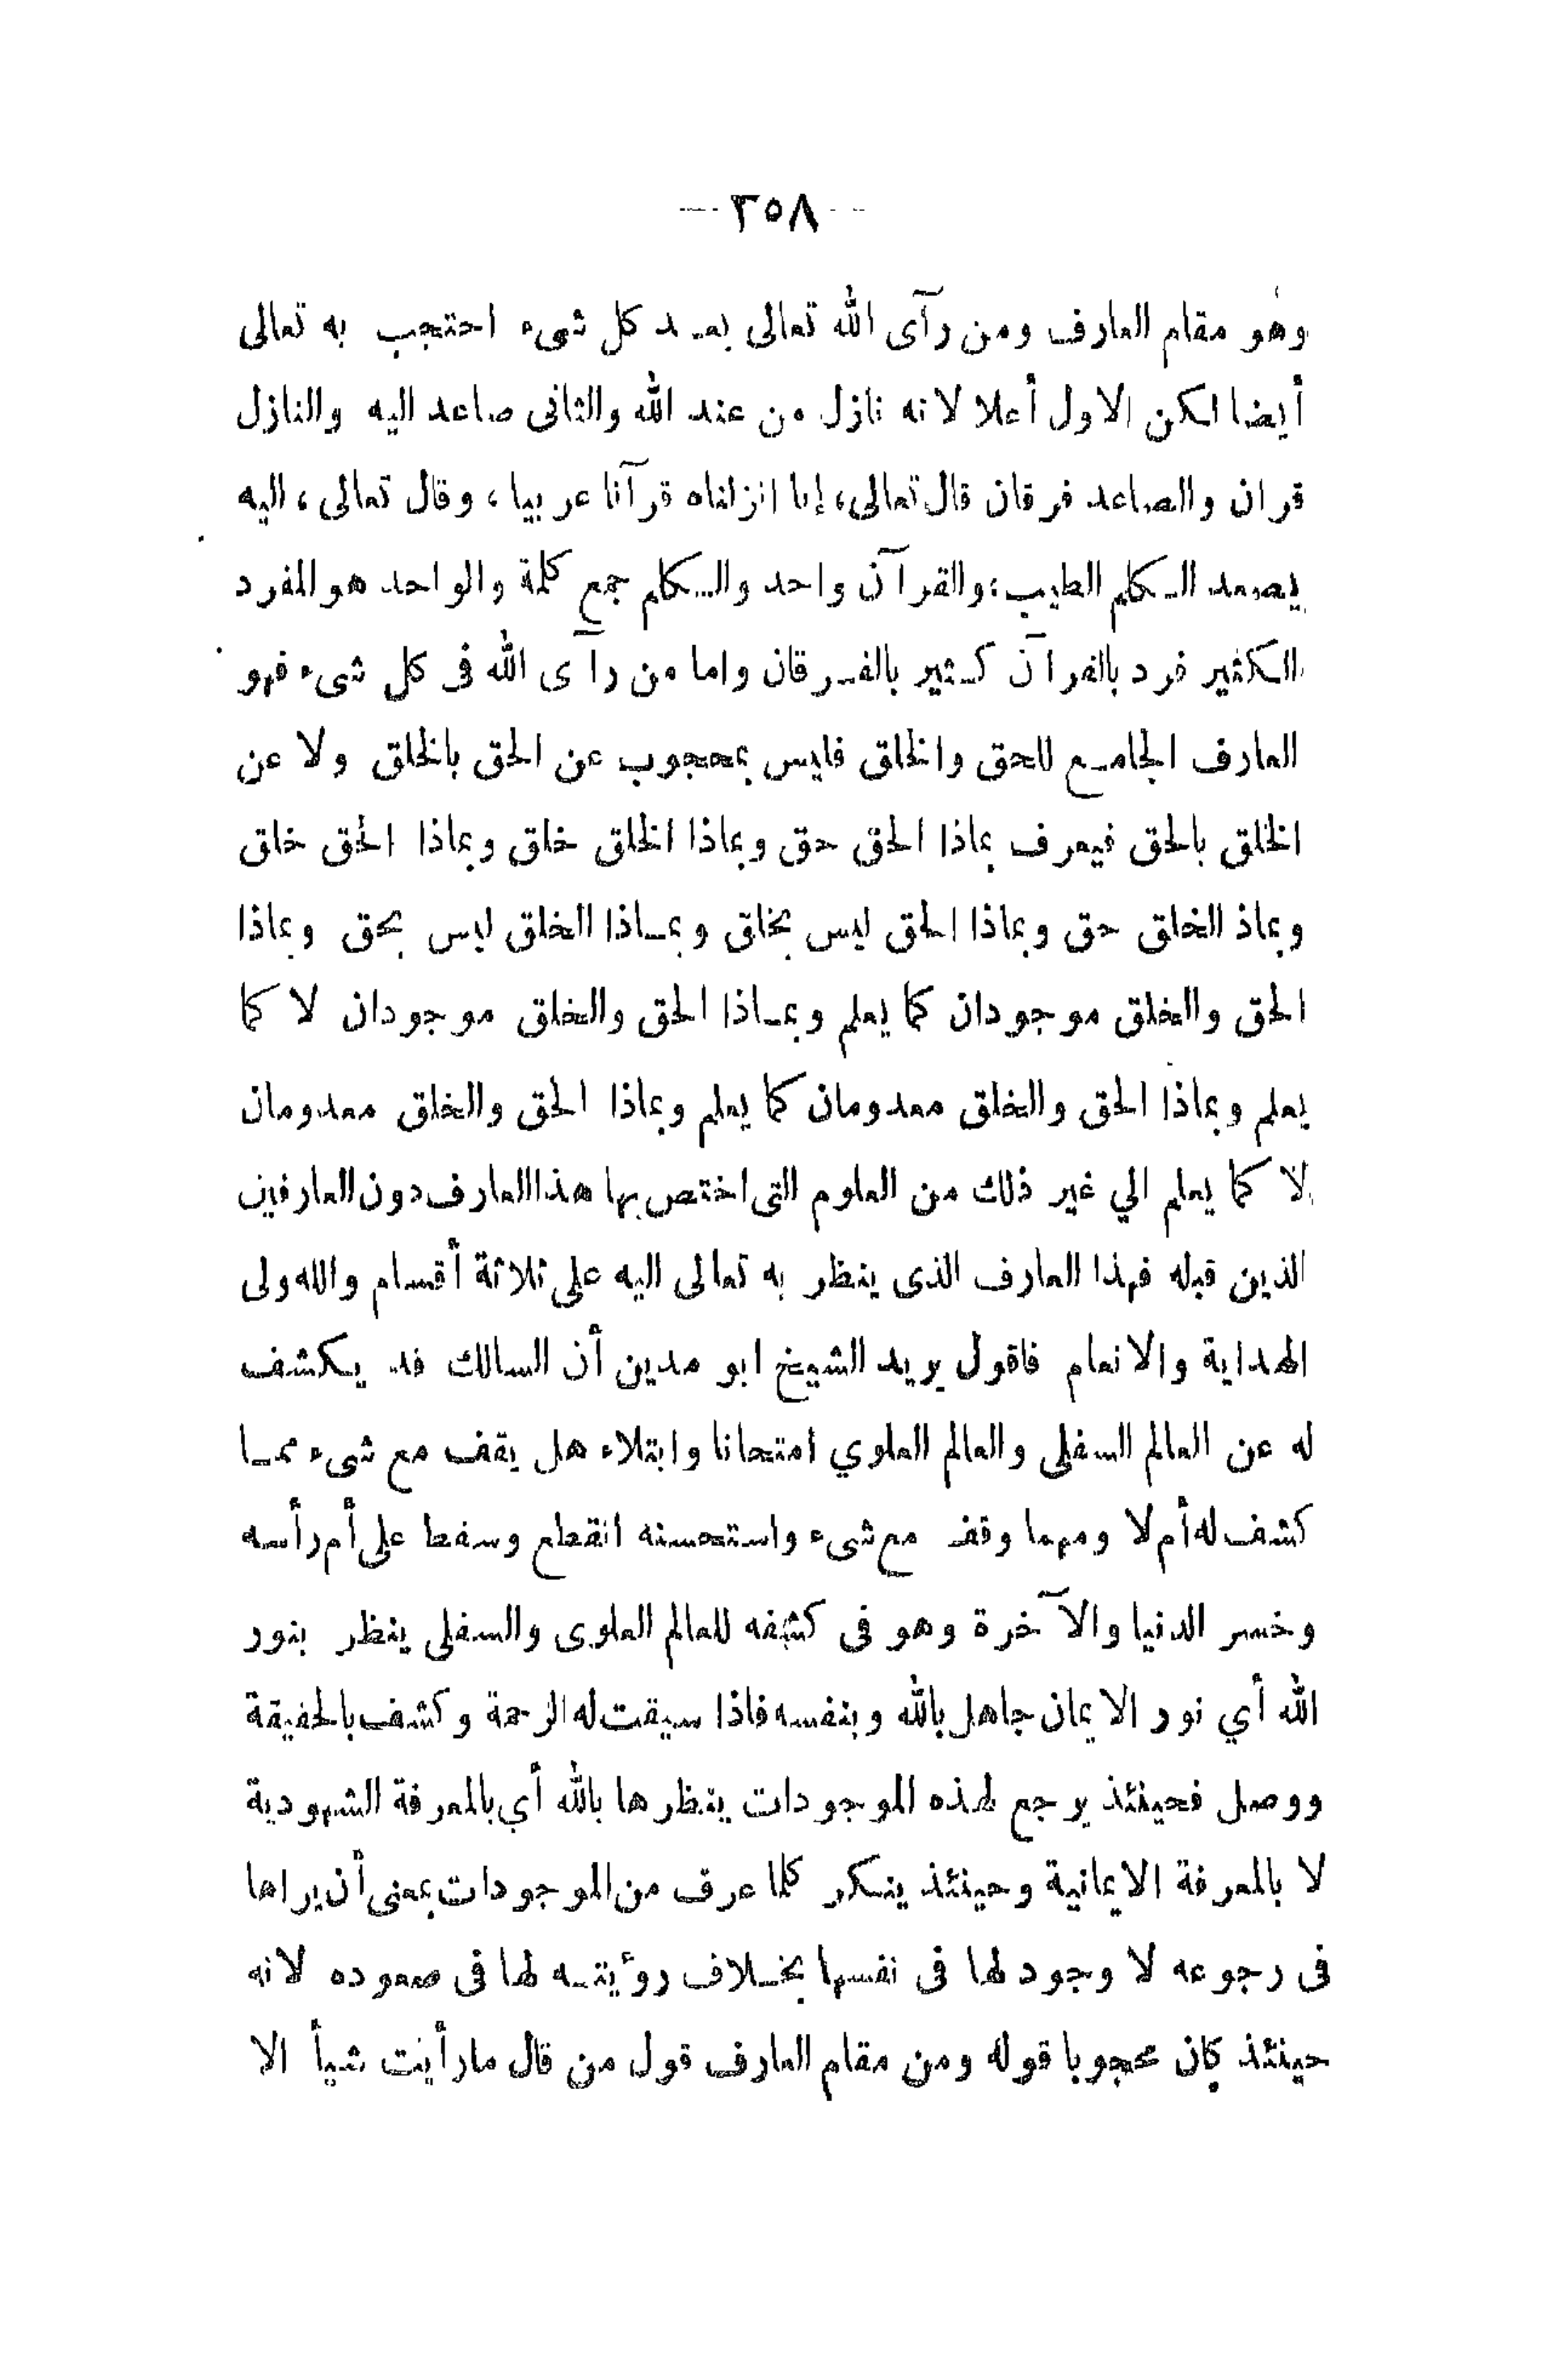 — ٣٥٨ —
وهو مقام العارف ومن رآى الله تعالى بعد كل شىء احتجب به تعالى
أيضا لكن الاول أعلا لانه نازل من عند الله والثانى صاعد اليه والنازل
قران والصاعد فرقان قال تعالى، إنا انزلناه قرآنا عربيا، وقال تعالى، اليه
يصعد الكلم الطيب، والقرآن واحد والكلم جمع كلمة والواحد هو المفرد
الكثير فرد بالقرآن كثير بالفرقان واما من رآى الله فى كل شىء فهو
العارف الجامع للحق والخلق فليس بمحجوب عن الحق بالخلق ولا عن
الخلق بالحق فيعرف بماذا الحق حق وبماذا الخلق خلق وبماذا الحق خلق
وبماذ الخلق حق وبماذا الحق ليس بخلق وبماذا الخلق ليس بحق وبماذا
الحق والخلق موجودان كما يعلم وبماذا الحق والخلق موجودان لا كما
يعلم وبماذا الحق والخلق معدومان كما يعلم وبماذا الحق والخلق معدومان
لا كما يعلم الي غير ذلك من العلوم التى اختص بها هذا العارف دون العارفين
الذين قبله فهذا العارف الذى ينظر به تعالى اليه على ثلاثة أقسام والله ولى
الهداية والانعام فاقول يريد الشيخ ابو مدين أن السالك قد يكشف
له عن العالم السفلى والعالم العلوي امتحانا وابتلاء هل يقف مع شىء مما
كشف له أم لا ومهما وقف مع شىء واستحسنه انقطع وسقط على أم رأسه
وخسر الدنيا والآخرة وهو فى كشفه للعالم العلوى والسفلى ينظر بنور
الله أي نور الايمان جاهل بالله وبنفسه فاذا سيقت له الرحمة وكشف بالحقيقة
ووصل فحينئذ يرجع لهذه الموجودات ينظرها بالله أي بالمعرفة الشهودية
لا بالمعرفة الايمانية وحينئذ ينكر كلما عرف من الموجودات بمعنى أن يراها
فى رجوعه لا وجود لها فى نفسها بخلاف رؤيته لها فى صعوده لانه
حينئذ كان محجوبا قوله ومن مقام العارف قول من قال ما رأيت شيأ الا